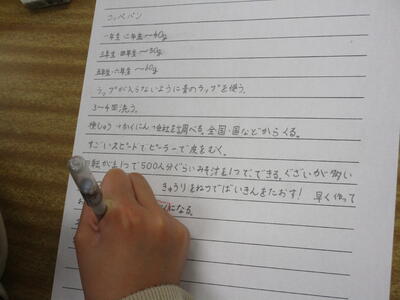 コッペパン
一年生・二年生〜40g
三年生・四年生〜50g
五年生・六年生〜60g
ラップが入らないように青のラップを使う。
3〜4回洗う。
検しゅう→かくにん→会社を調べる。全国・国などからくる。
すごいスピードでピーラーで皮をむく。
1つで500人分ぐらいみそ汁を1つでできる。ぐざいが多い
きゅうりをねつでばいきんをたおす! 早く作って
になる。